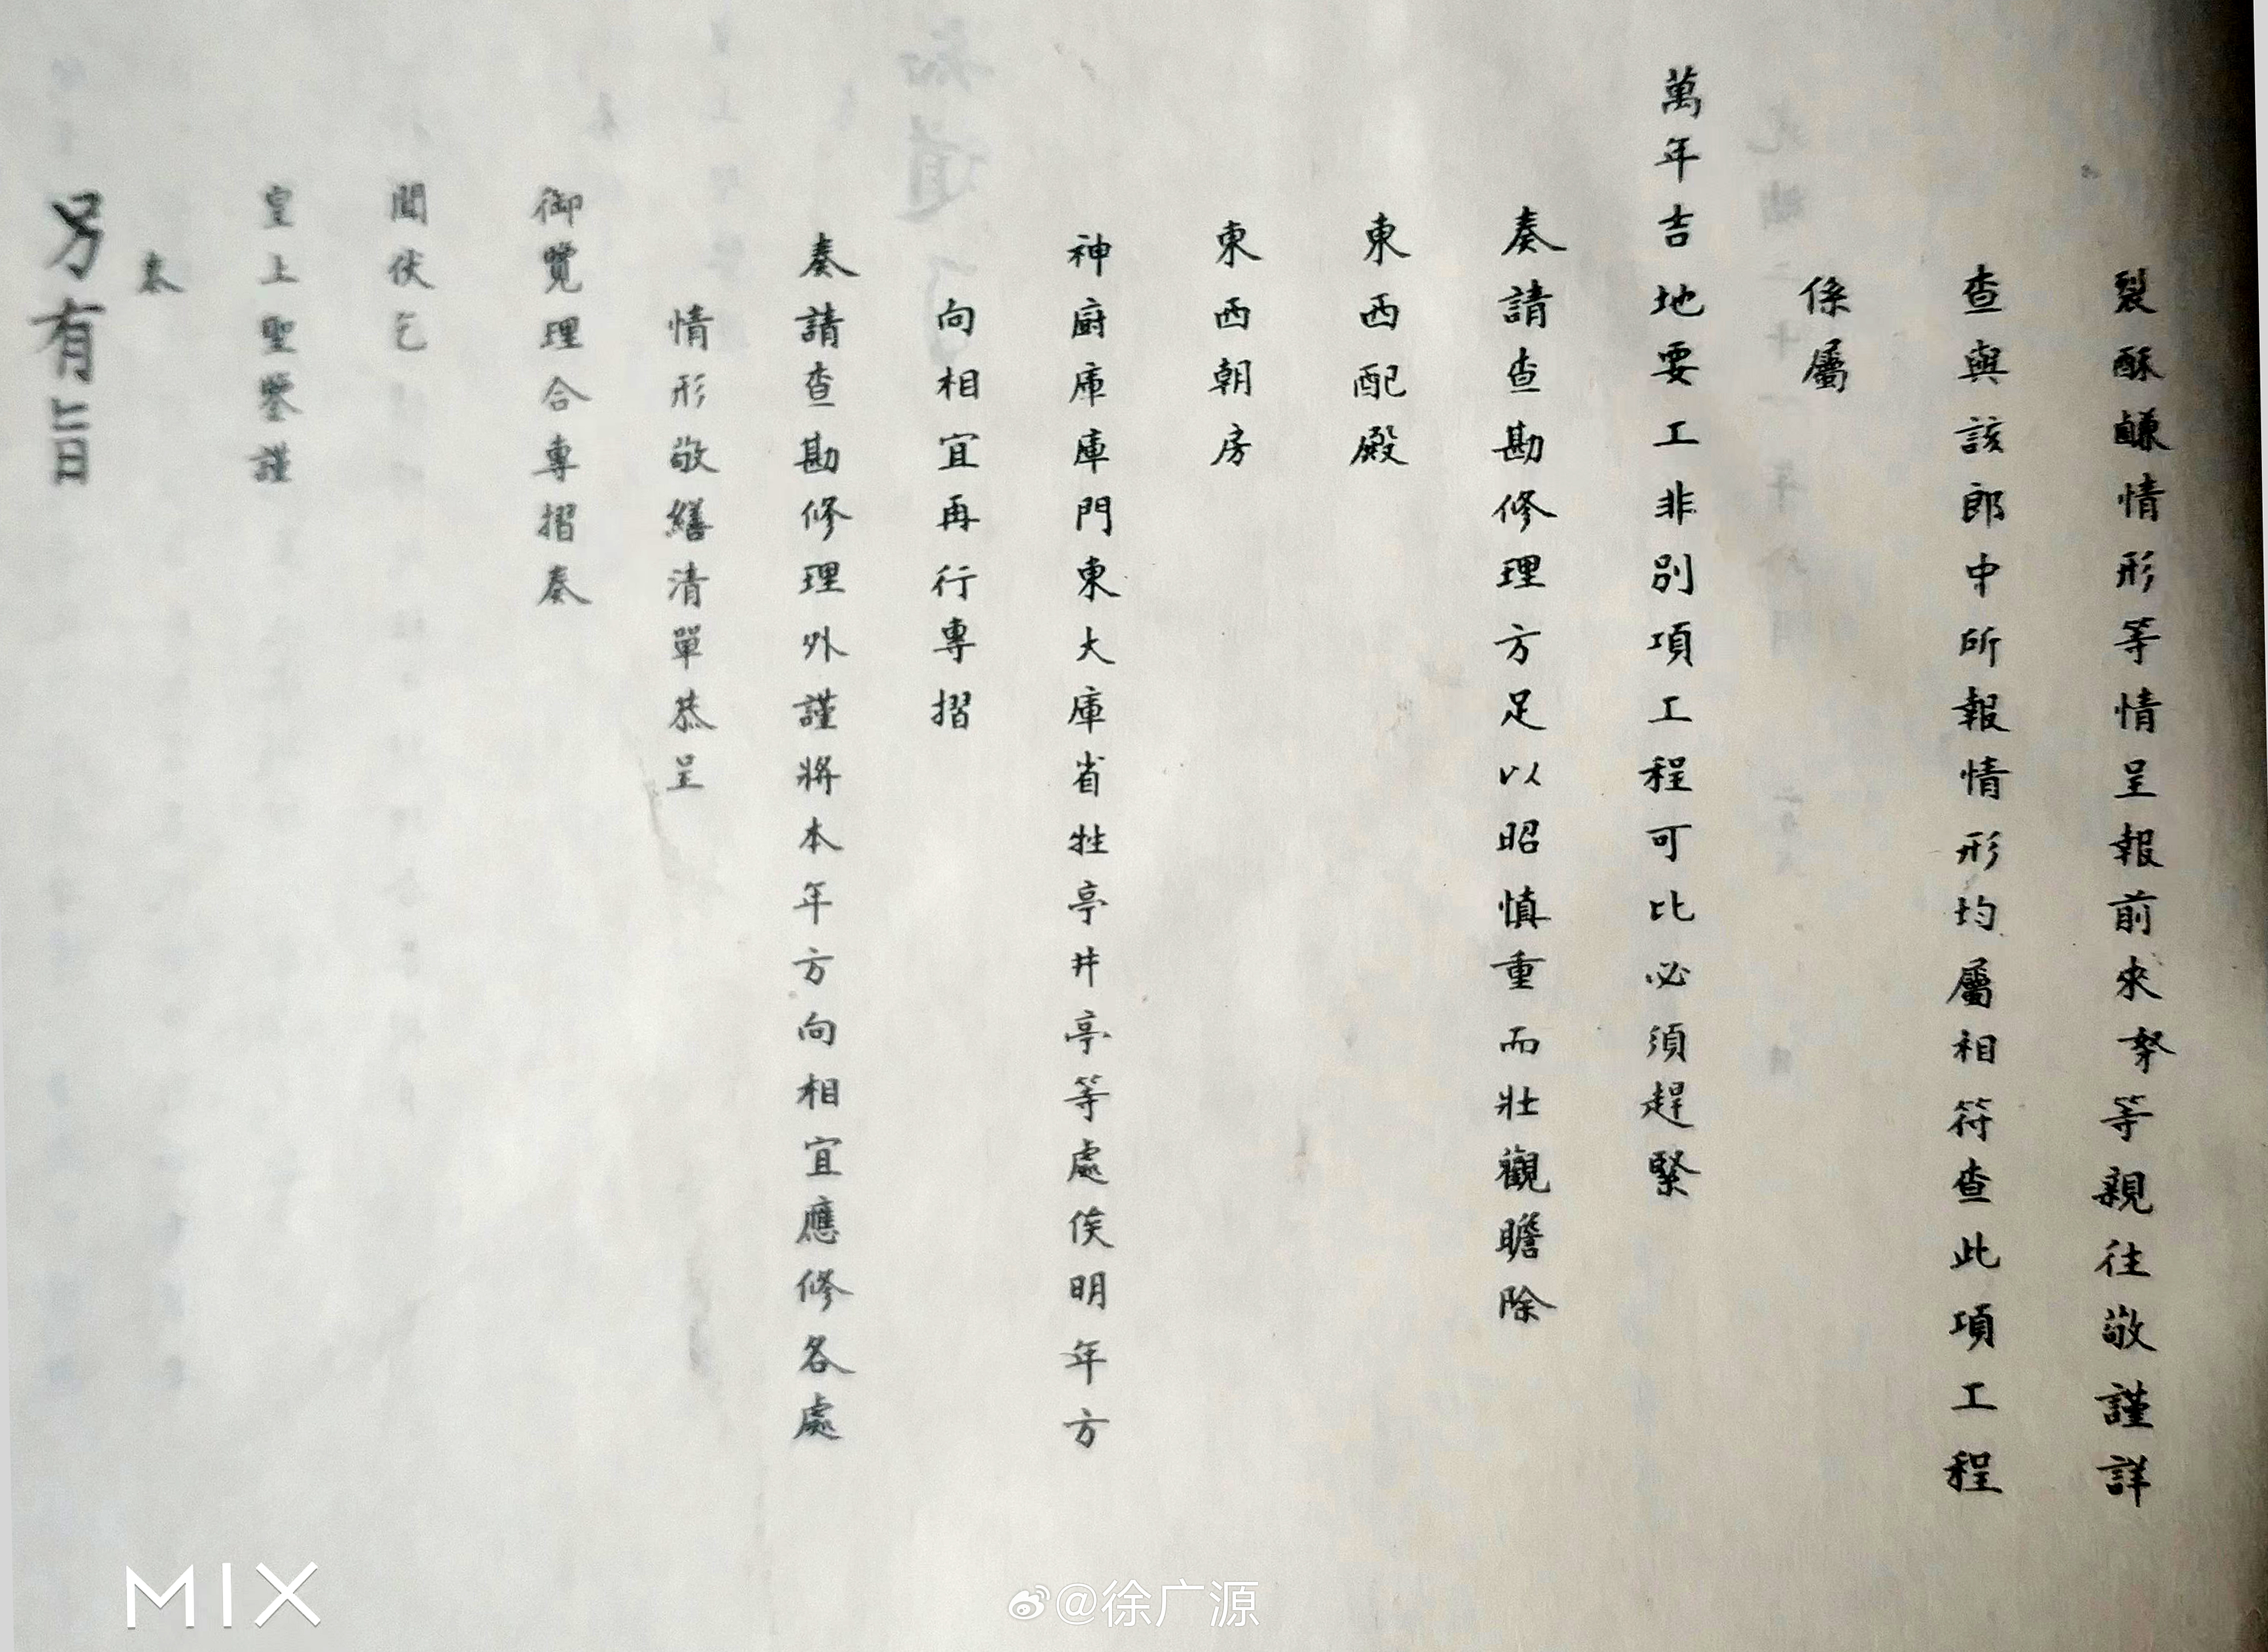 裂酥鹻情形等情呈報前來奴才等親往敬謹詳
查與該郎中所報情形均屬相符查此項工程
係屬
萬年吉地要工非別項工程可比必須趕緊
奏請查勘修理方足以昭慎重而壯觀瞻除
東西配殿
東西朝房
神廚庫庫門東大庫省牲亭井亭等處俟明年方
向相宜再行專摺
奏請查勘修理外謹將本年方向相宜應修各處
情形敬繕清單恭呈
御覽理合專摺奏
聞伏乞
皇上聖鑒謹
奏
另有旨
MIX
@徐广源